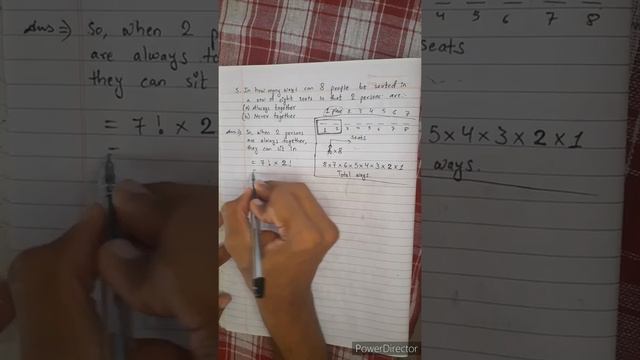 5. In how many ways can 8 people be seated in
a row of eight seats so that 2 persons are
(a) Always together
(b) Never together
1 place 2 3 4 5 6 7
1 2 3 4 5 6 7 8
seats
x 8
8 x 7 x 6 x 5 x 4 x 3 x 2 x 1
Total ways.
Ans ⇒) So, when 2 persons
are always together,
they can sit in
= 7! x 2!
=
Ans ⇒) So, when 2
are always to
they can sit
= 7! x 2
4 5 6 7 8
seats
5 x 4 x 3 x 2 x 1
ways.
PowerDirector